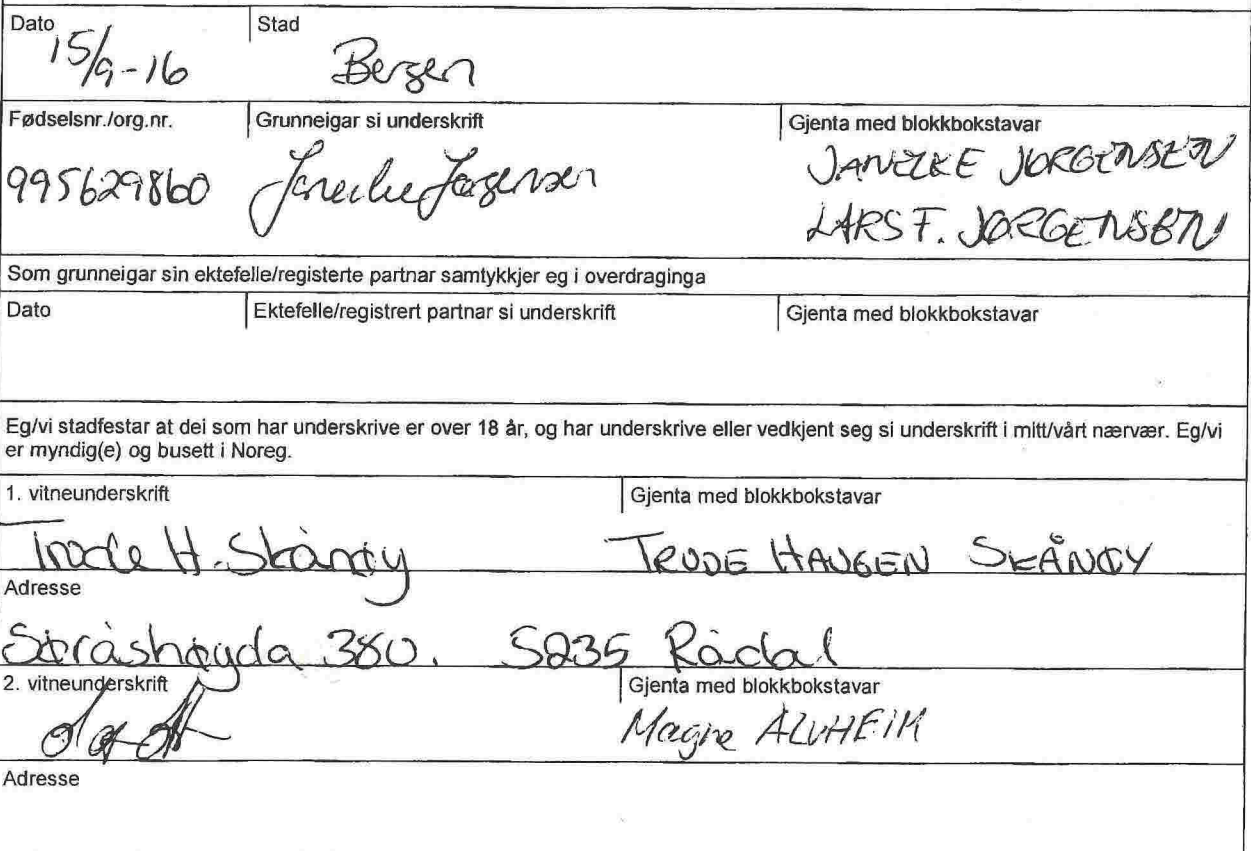 Dato Stad
15/9-16 Bergen
Fødselsnr./org.nr. Grunneigar si underskrift Gjenta med blokkbokstavar
995629860 Janecke Jørgensen JANECKE JØRGENSEN
LARS F. JØRGENSEN
Som grunneigar sin ektefelle/registerte partnar samtykkjer eg i overdraginga
Dato Ektefelle/registrert partnar si underskrift Gjenta med blokkbokstavar
Eg/vi stadfestar at dei som har underskrive er over 18 år, og har underskrive eller vedkjent seg si underskrift i mitt/vårt nærvær. Eg/vi
er myndig(e) og busett i Noreg.
1. vitneunderskrift Gjenta med blokkbokstavar
Trude H. Skånøy TRUDE HAUGEN SKÅNØY
Adresse
Søråshøyda 380. 5235 Rådal
2. vitneunderskrift Gjenta med blokkbokstavar
Magne ALVHEIM
Adresse